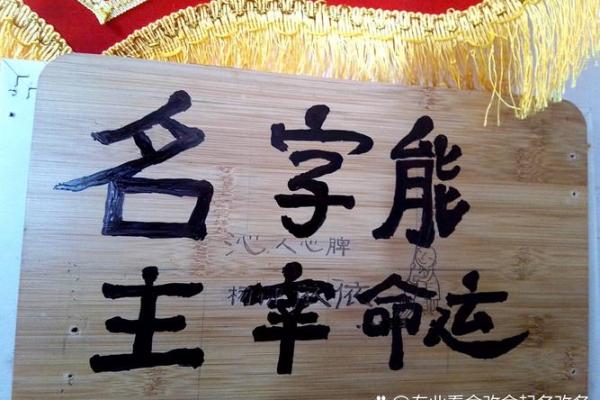 名字能
沁人心脾
主宰命运
@专业看命改命起名改名